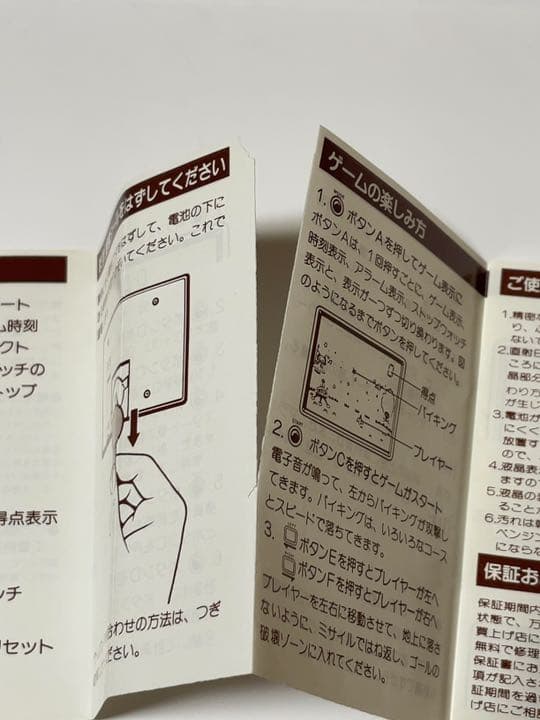 ート
ム時刻
クト
ッチの
トップ
得点表示
ッチ
リセット
をはずしてください
はずして、電池の下に
いてください。これで
合わせの方法は、つぎ
ださい。
ゲームの楽しみ方
1. ボタンAを押してゲーム表示に
ボタンAは、1回押すごとに、ゲーム表示、
時刻表示、アラーム表示、ストップウオッチ
表示と、表示が一つずつ切り換わります。図
のようになるまでボタンを押してください。
得点
バイキング
プレイヤー
2. START ボタンCを押すとゲームがスタート
電子音が鳴って、左からバイキングが攻撃し
てきます。バイキングは、いろいろなコース
とスピードで落ちてきます。
3. ボタンEを押すとプレイヤーが左へ
ボタンFを押すとプレイヤーが右へ
プレイヤーを左右に移動させて、地上に落さ
ないように、ミサイルではね返し、ゴールの
破壊ゾーンに入れてください。
ご使
1.精密な
り、
ないで
2.直射日
ころに
晶部分
わり方
が生じ
3.電池が
にくく
放置す
ので、
4.液晶表
ますので
5.液晶の
ること
6.汚れは
ベンジン
にならな
保証お
保証期間内
状態で、万
買上げ店に
無料で修理
保証書にお
項が記入さ
証期間を過
げ店にご相